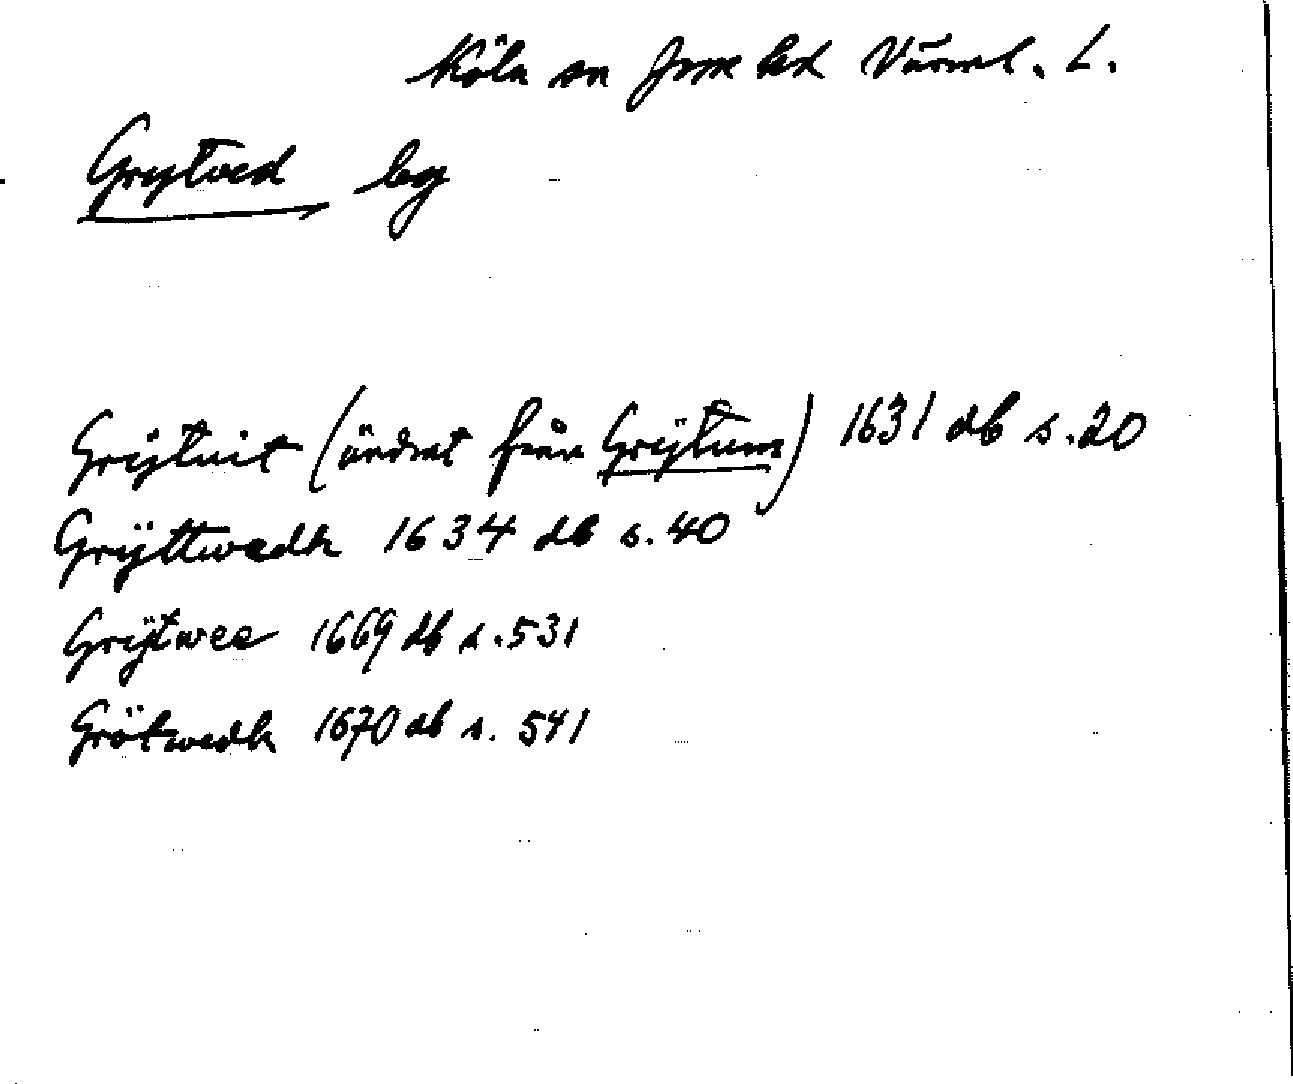 Köla sn Jösse hd Värml. L.
Grytved by
Grÿtuit (ändrat från Grÿtum) 1631 db s. 20
Grÿttwedh 1634 db s. 40
Grÿtwee 1669 db s. 531
Grötwedh 1670 db s. 541